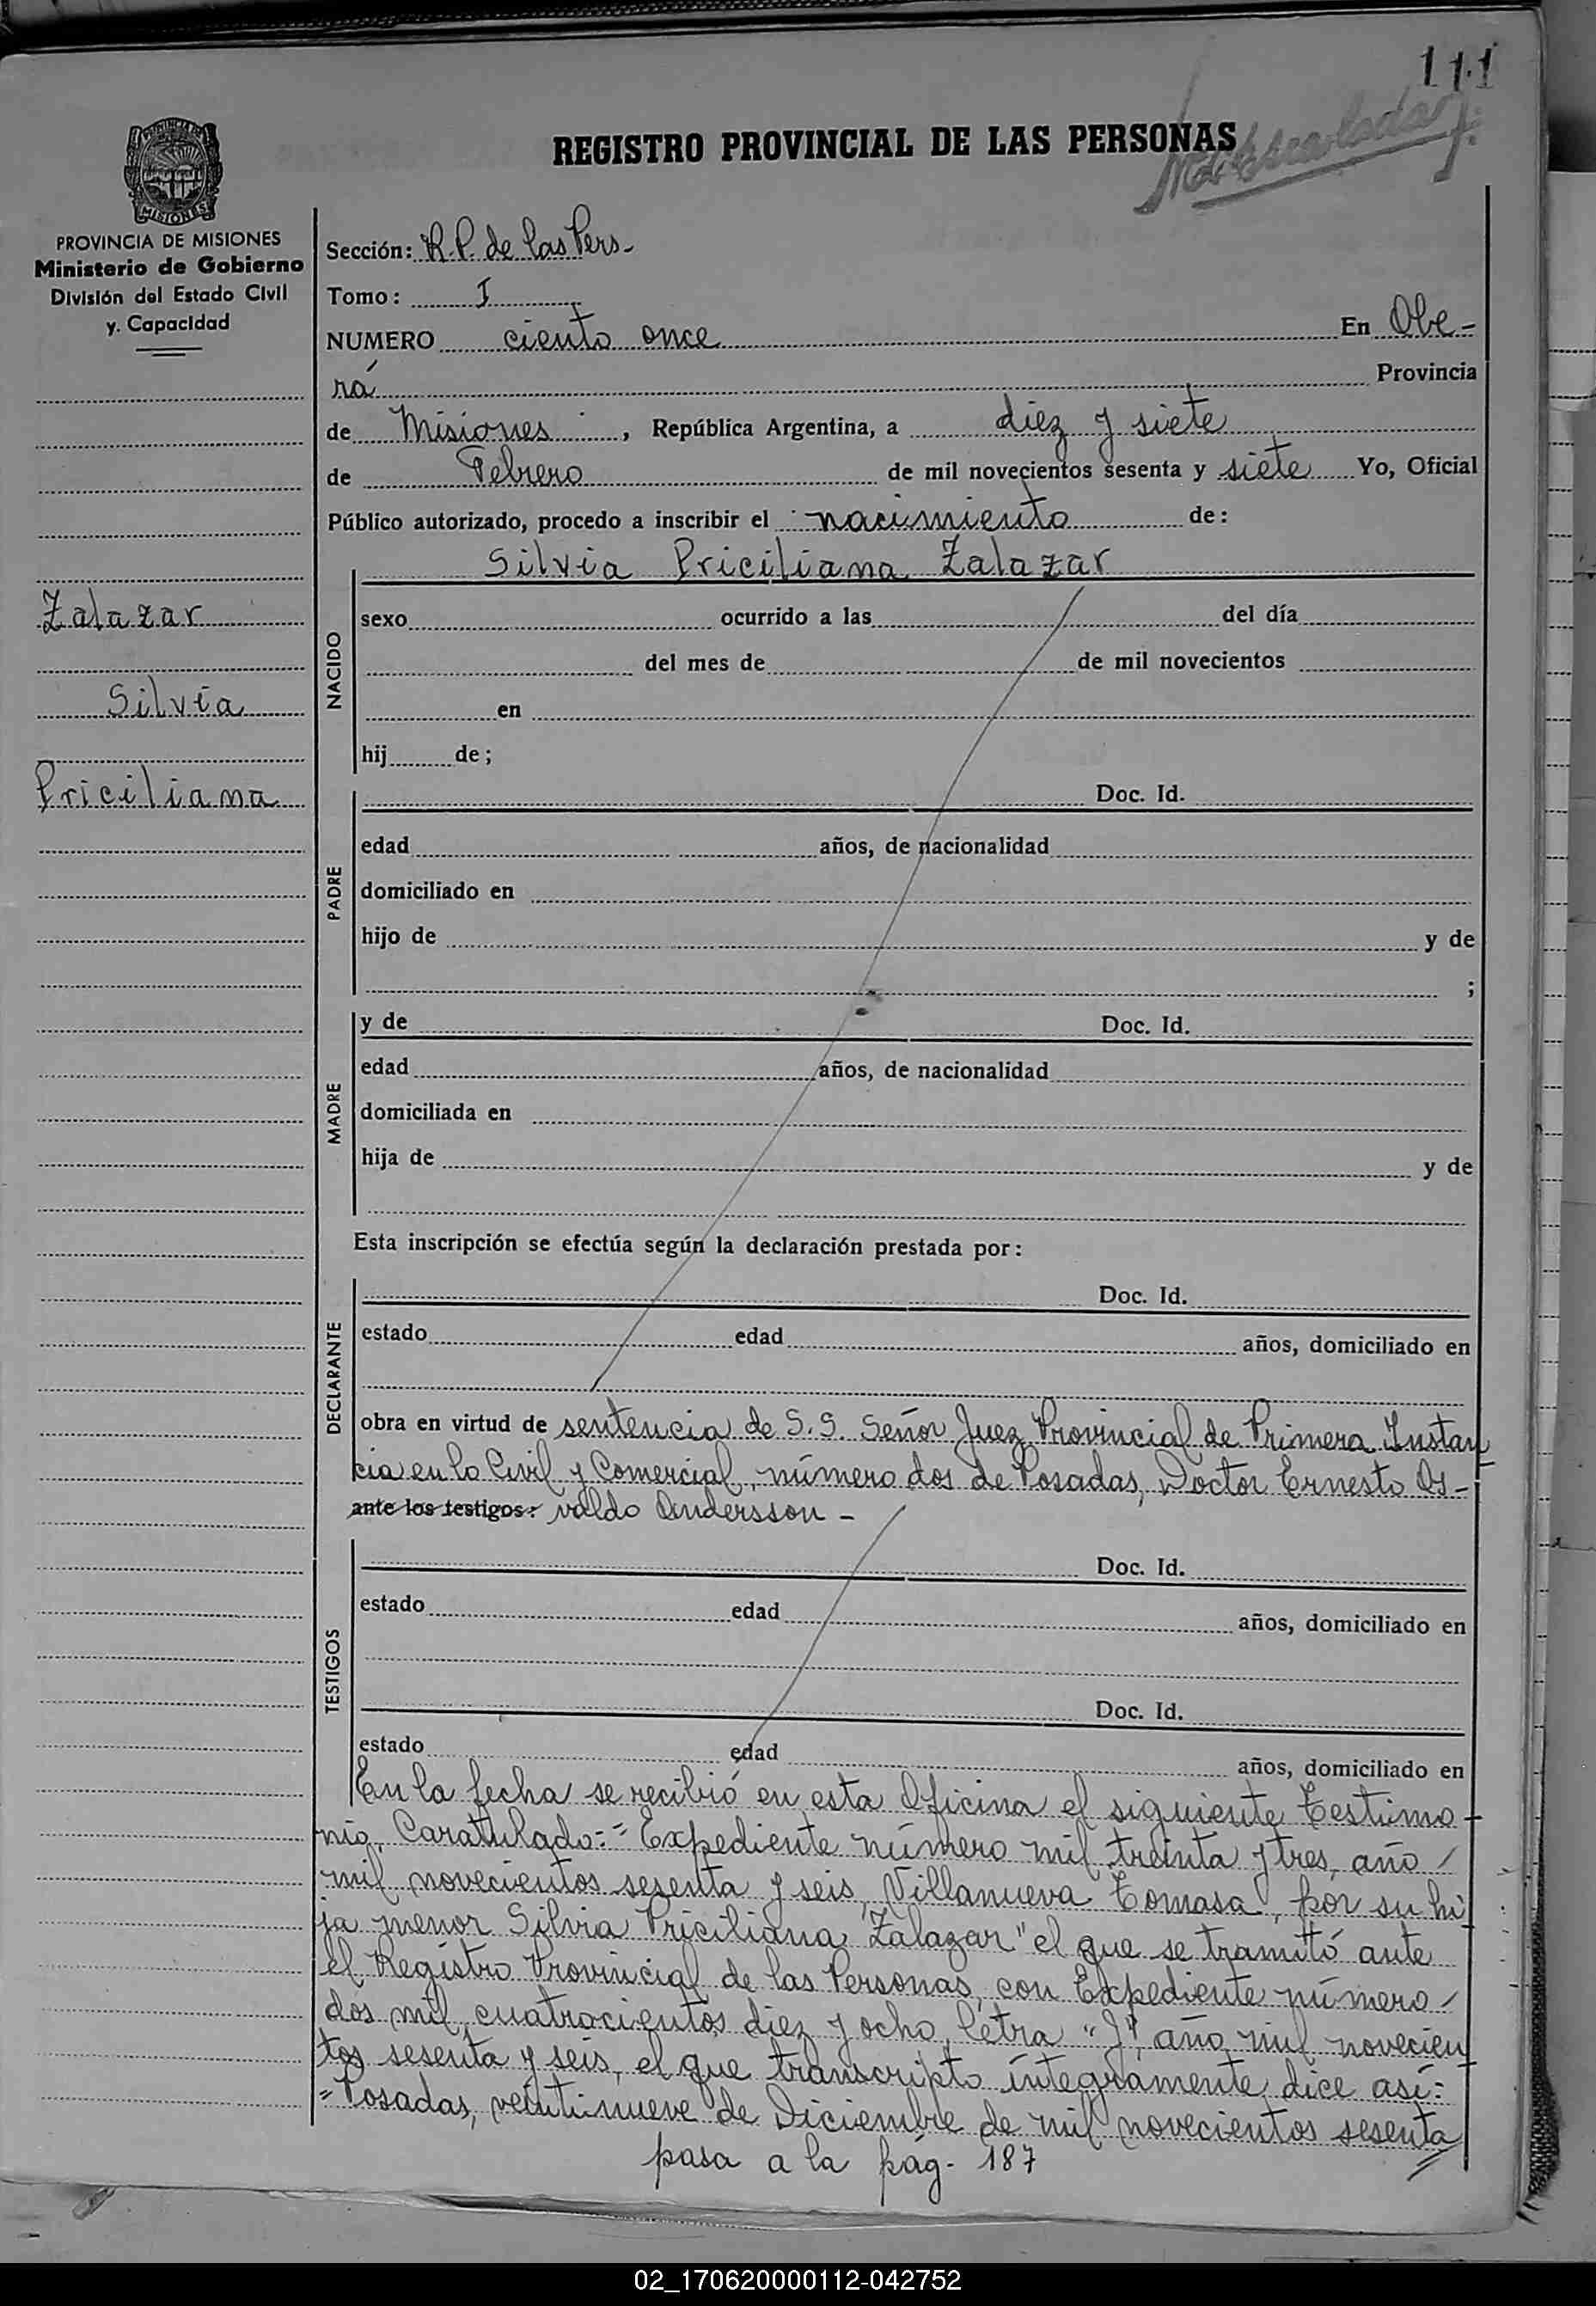 111
REGISTRO PROVINCIAL DE LAS PERSONAS
PROVINCIA DE MISIONES
Ministerio de Gobierno
División del Estado Civil
y. Capacidad
Sección: R.P. de las Pers-
Tomo: I
NUMERO ciento once En Obe-
rá Provincia
de Misiones, República Argentina, a diez y siete
de Febrero de mil novecientos sesenta y siete Yo, Oficial
Público autorizado, procedo a inscribir el nacimiento de:
Silvia Priciliana Zalazar
Zalazar
Silvia
Priciliana
NACIDO
sexo ocurrido a las del día
del mes de de mil novecientos
en
hij de;
PADRE
Doc. Id.
edad años, de nacionalidad
domiciliado en
hijo de y de
;
MADRE
y de Doc. Id.
edad años, de nacionalidad
domiciliada en
hija de y de
Esta inscripción se efectúa según la declaración prestada por:
DECLARANTE
Doc. Id.
estado edad años, domiciliado en
obra en virtud de sentencia de S.S. Señor Juez Provincial de Primera Instan
cia en lo Civil y Comercial, número dos de Posadas, Doctor Ernesto Os-
ante los testigos: valdo Andersson -
TESTIGOS
Doc. Id.
estado edad años, domiciliado en
Doc. Id.
estado edad años, domiciliado en
En la fecha se recibió en esta Oficina el siguiente Testimo-
nio. Caratulado:-"Expediente número mil treinta y tres, año
mil novecientos sesenta y seis, Villanueva Tomasa, por su hi
ja menor Silvia Priciliana Zalazar" el que se tramitó ante
el Registro Provincial de las Personas, con Expediente número
dos mil cuatrocientos diez y ocho, letra "J", año mil novecien
tos sesenta y seis, el que transcripto íntegramente, dice así:-
"Posadas, veintinueve de Diciembre de mil novecientos sesenta
pasa a la pág. 187
02_170620000112-042752